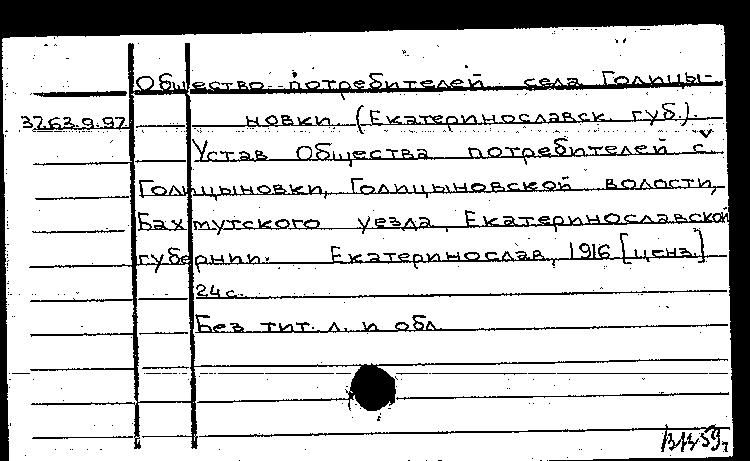 Общество потребителей села Голицы-
37.63.9.97 новки (Екатеринославск. губ.).
Устав Общества потребителей с.
Голицыновки, Голицыновской волости,
Бахмутского уезда, Екатеринославской
губернии. Екатеринослав, 1916 [ценз.]
24 с.
Без тит. л. и обл.